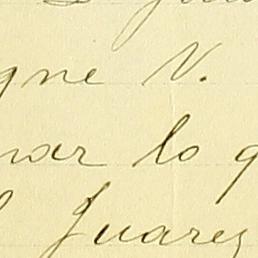 gne V.
nar lo q
Juarez